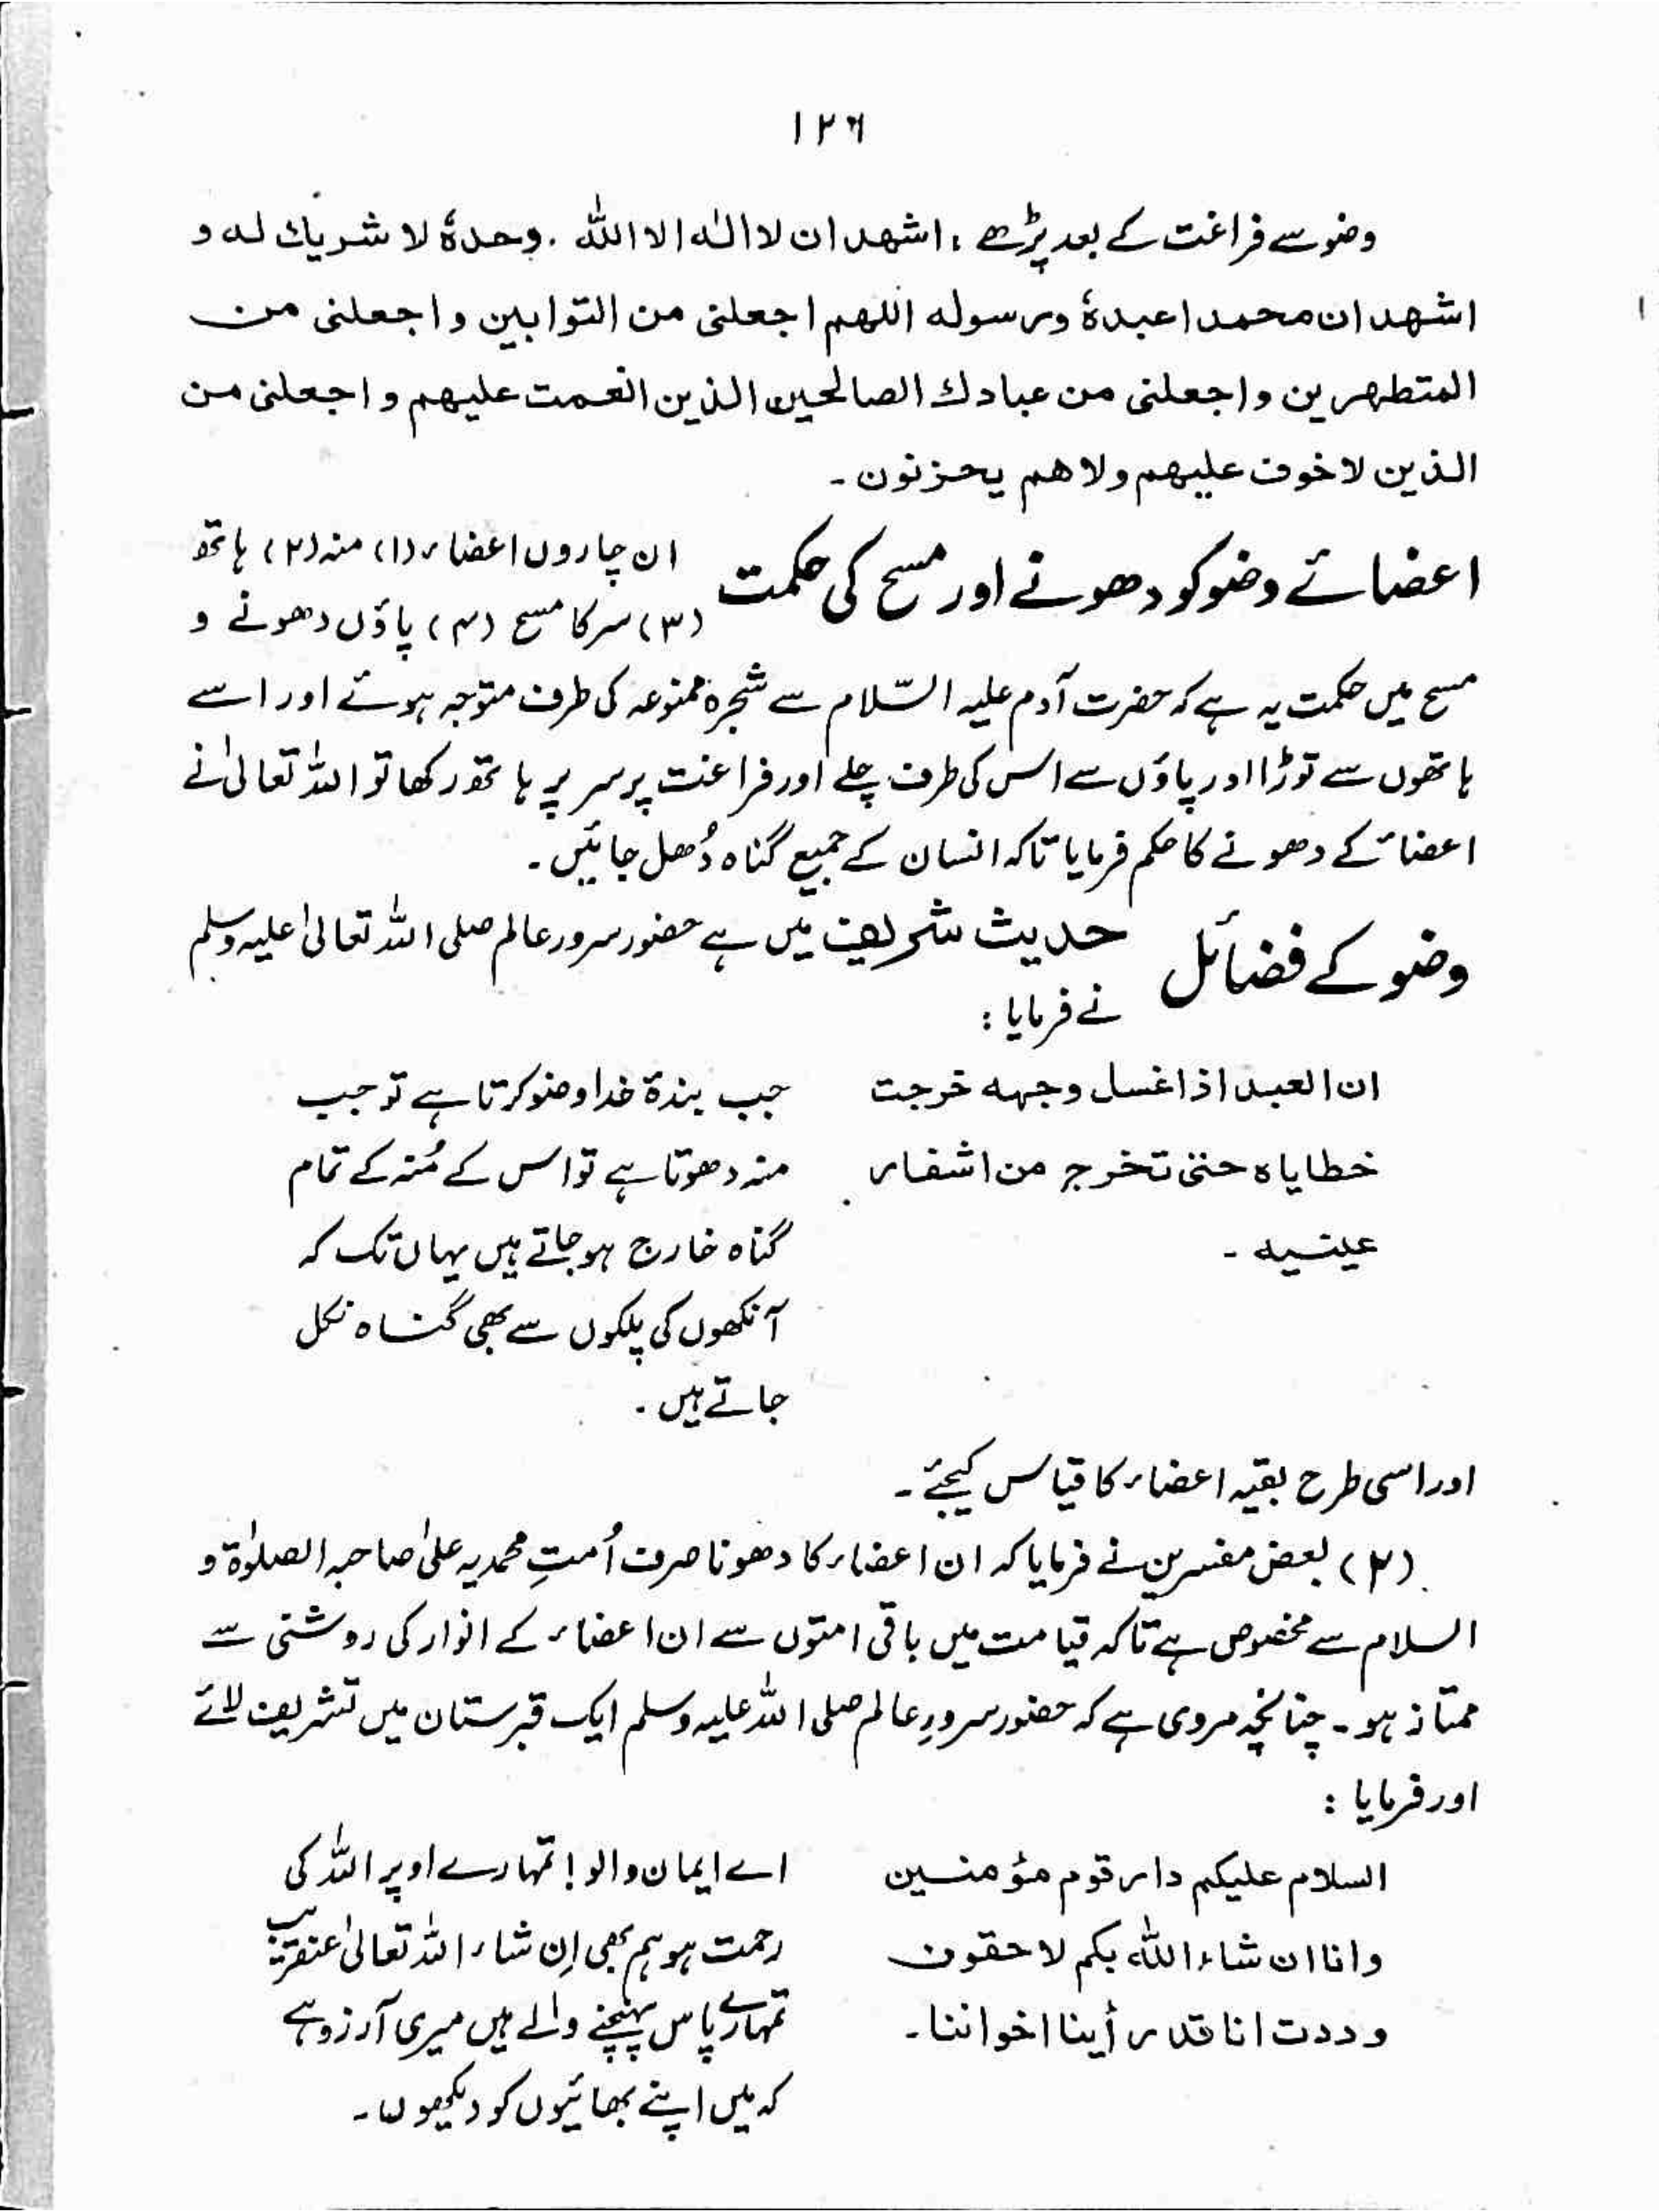 ۱۲۶
وضو سے فراغت کے بعد پڑھے : اشهد ان لا اله الا الله . وحدهٗ لا شريك له و
اشهد ان محمدا عبدهٗ ورسوله اللهم اجعلنى من التوابين واجعلنى من
المتطهرين واجعلنى من عبادك الصالحين الذين انعمت عليهم واجعلنى من
الذين لا خوف عليهم ولا هم يحزنون ۔
اعضائے وضو کو دھونے اور مسح کی حکمت
ان چاروں اعضاء (۱) منہ (۲) ہاتھ
(۳) سر کا مسح (۴) پاؤں دھونے و
مسح میں حکمت یہ ہے کہ حضرت آدم علیہ السّلام سے شجرۂ ممنوعہ کی طرف متوجہ ہوئے اور اسے
ہاتھوں سے توڑا اور پاؤں سے اس کی طرف چلے اور فراغت پر سر پر ہاتھ رکھا تو اللہ تعالیٰ نے
اعضائ کے دھونے کا حکم فرمایا تاکہ انسان کے جمیع گناہ دُھل جائیں ۔
وضو کے فضائل
حدیث شریف میں ہے حضور سرور عالم صلی اللہ تعالیٰ علیہ وسلم
نے فرمایا :
ان العبد اذا غسل وجهه خرجت
خطاياه حتى تخرج من اشفار
عينيه ۔
جب بندۂ خدا وضو کرتا ہے تو جب
منہ دھوتا ہے تو اس کے مُنہ کے تمام
گناہ خارج ہو جاتے ہیں یہاں تک کہ
آنکھوں کی پلکوں سے بھی گناہ نکل
جاتے ہیں ۔
اور اسی طرح بقیہ اعضاء کا قیاس کیجئے ۔
(۲) بعض مفسرین نے فرمایا کہ ان اعضاء کا دھونا صرف اُمتِ محمدیہ علیٰ صاحبہ الصلوٰۃ و
السلام سے مخصوص ہے تاکہ قیامت میں باقی امتوں سے ان اعضاء کے انوار کی روشنی سے
ممتاز ہو ۔ چنانچہ مروی ہے کہ حضور سرورِ عالم صلی اللہ علیہ وسلم ایک قبرستان میں تشریف لائے
اور فرمایا :
السلام عليكم دار قوم مؤمنين
وانا ان شاء الله بكم لاحقون
وددت انا قد رأينا اخواننا ۔
اے ایمان والو ! تمہارے اوپر اللہ کی
رحمت ہو ہم بھی اِن شاء اللہ تعالیٰ عنقریب
تمہارے پاس پہنچنے والے ہیں میری آرزو ہے
کہ میں اپنے بھائیوں کو دیکھوں ۔